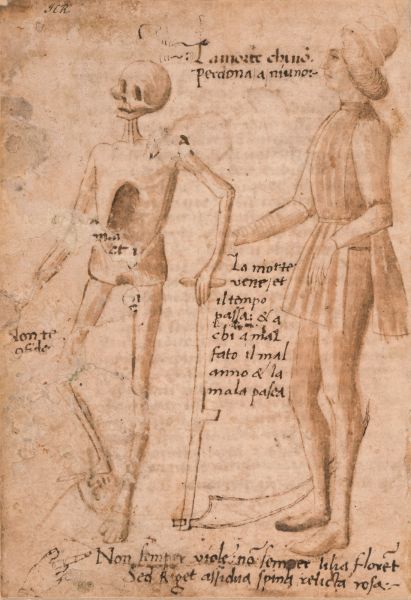 JCR
La morte chi nō
perdona a niuno
mia
et i
La morte
vene et
il tempo
passa: & a
chi a mal
fato il mal
anno & la
mala pasca
Non te
Non semper viole: nō semper lilia florēt
Sed riget assidua spina relicta rosa